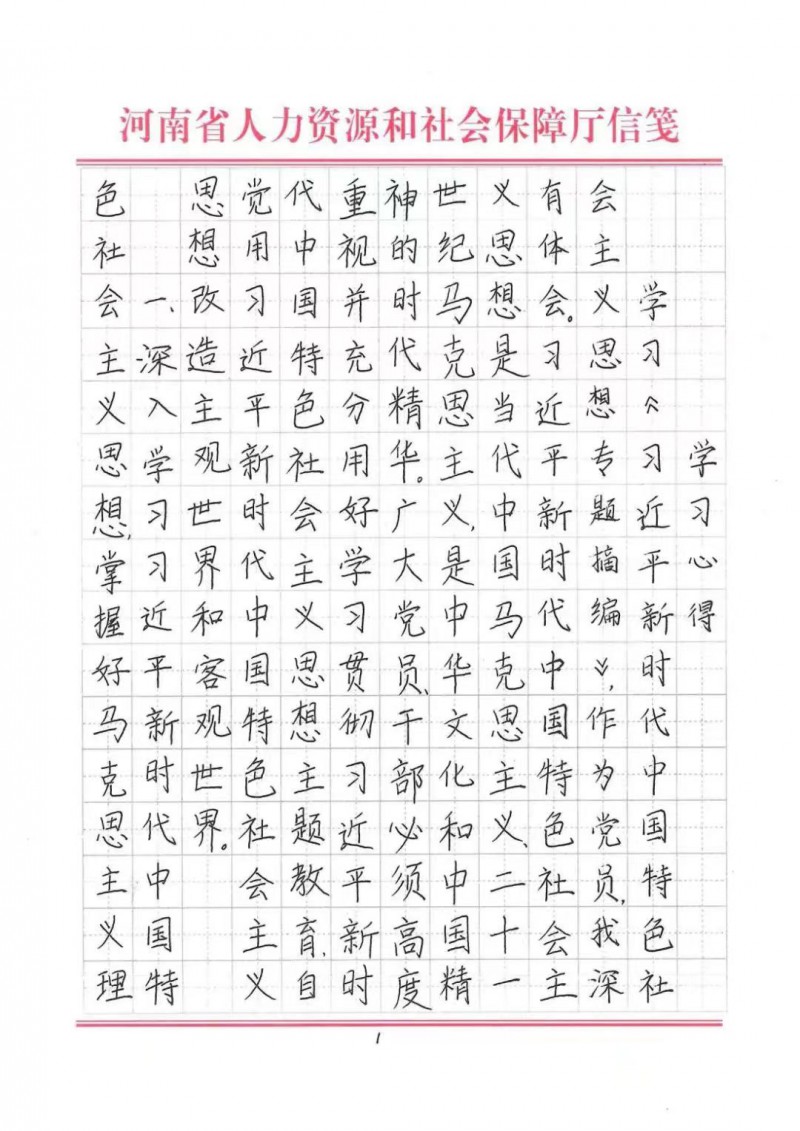 河南省人力资源和社会保障厅信笺
学习心得
学习《习近平新时代中国特色社
会主义思想专题摘编》,作为党员,我深
有体会。习近平新时代中国特色社会主
义思想是当代中国马克思主义、二十一
世纪马克思主义,是中华文化和中国精
神的时代精华。广大党员、干部必须高度
重视并充分用好学习贯彻习近平新时
代中国特色社会主义思想主题教育、自
党用习近平新时代中国特色社会主义
思想改造主观世界和客观世界。
一、深入学习习近平新时代中国特
色社会主义思想,掌握好马克思主义理
1